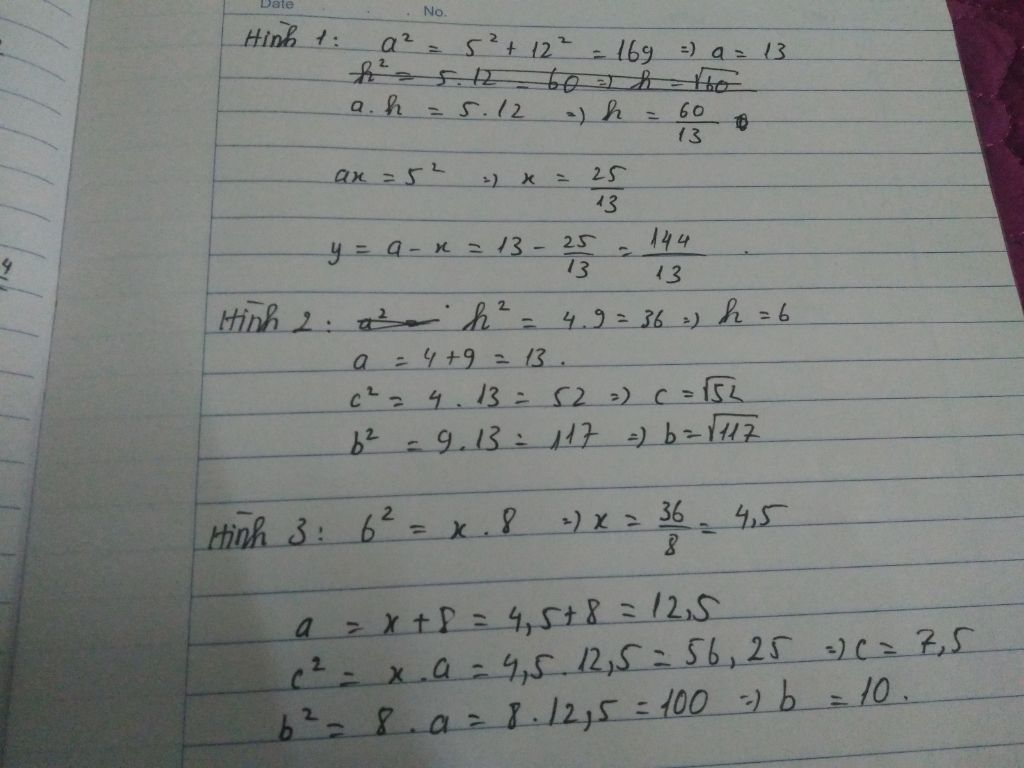 Date No.
Hình 1: a² = 5² + 12² = 169 => a = 13
h² = 5.12 = 60 => h = √60
a.h = 5.12 => h = 60/13
ax = 5² => x = 25/13
y = a - x = 13 - 25/13 = 144/13
Hình 2: a² h² = 4.9 = 36 => h = 6
a = 4+9 = 13.
c² = 4.13 = 52 => c = √52
b² = 9.13 = 117 => b = √117
Hình 3: 6² = x.8 => x = 36/8 = 4,5
a = x+8 = 4,5+8 = 12,5
c² = x.a = 4,5.12,5 = 56,25 => c = 7,5
b² = 8.a = 8.12,5 = 100 => b = 10.